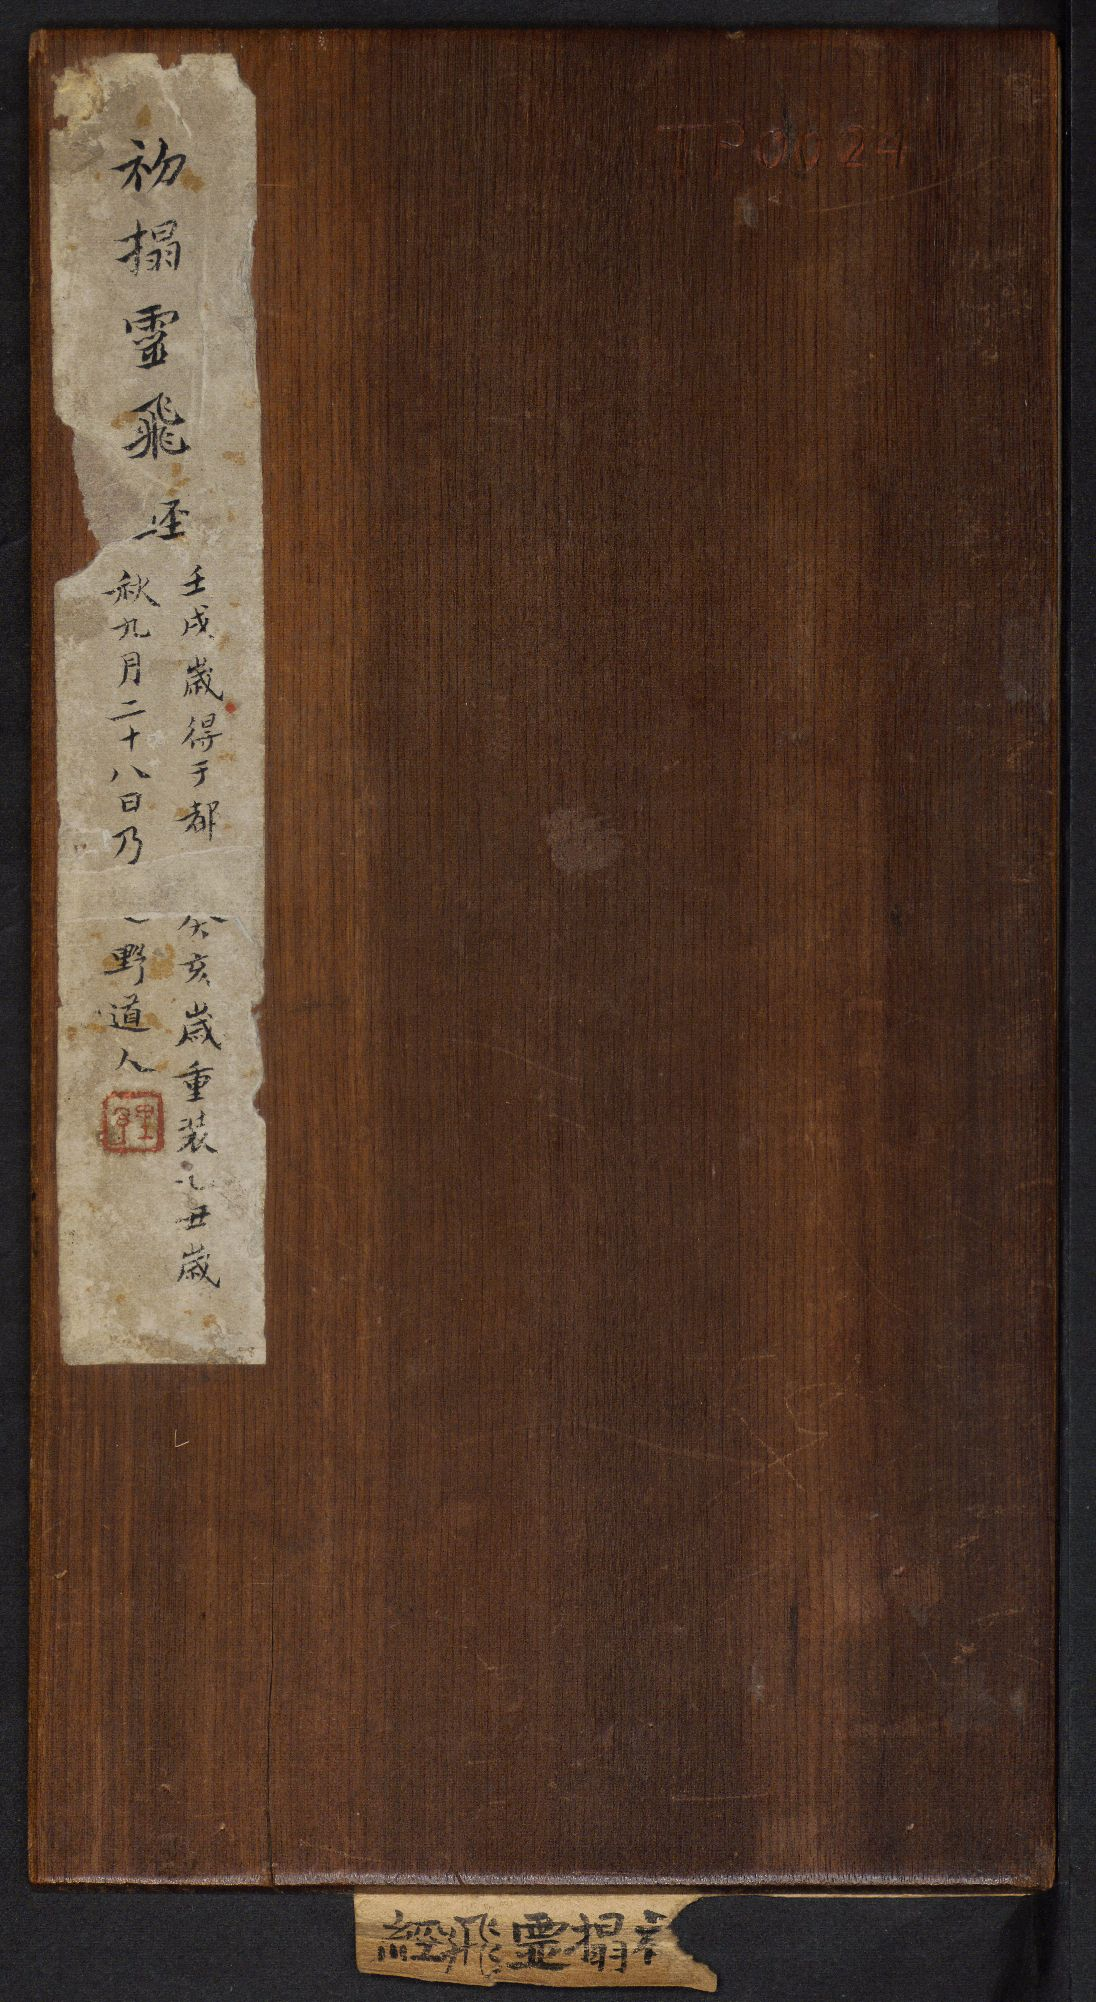 初搨靈飛經
壬戌歲得于都
秋九月二十八日乃
癸亥歲重装乙丑歲
野道人
TP0024
經飛靈搨初